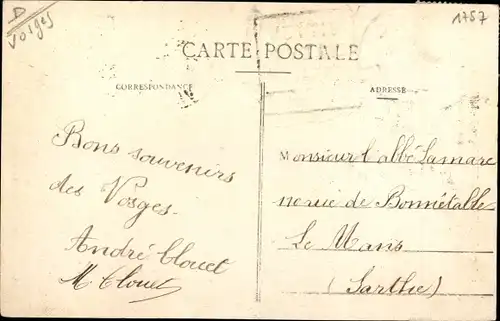 D
Vosges
1757
CARTE POSTALE
CORRESPONDANCE
ADRESSE
Bons souvenirs
des Vosges.
André Clouet
M Clouet
Monsieur l'abbé Lamare
110 rue de Bonnétable
Le Mans
(Sarthe)